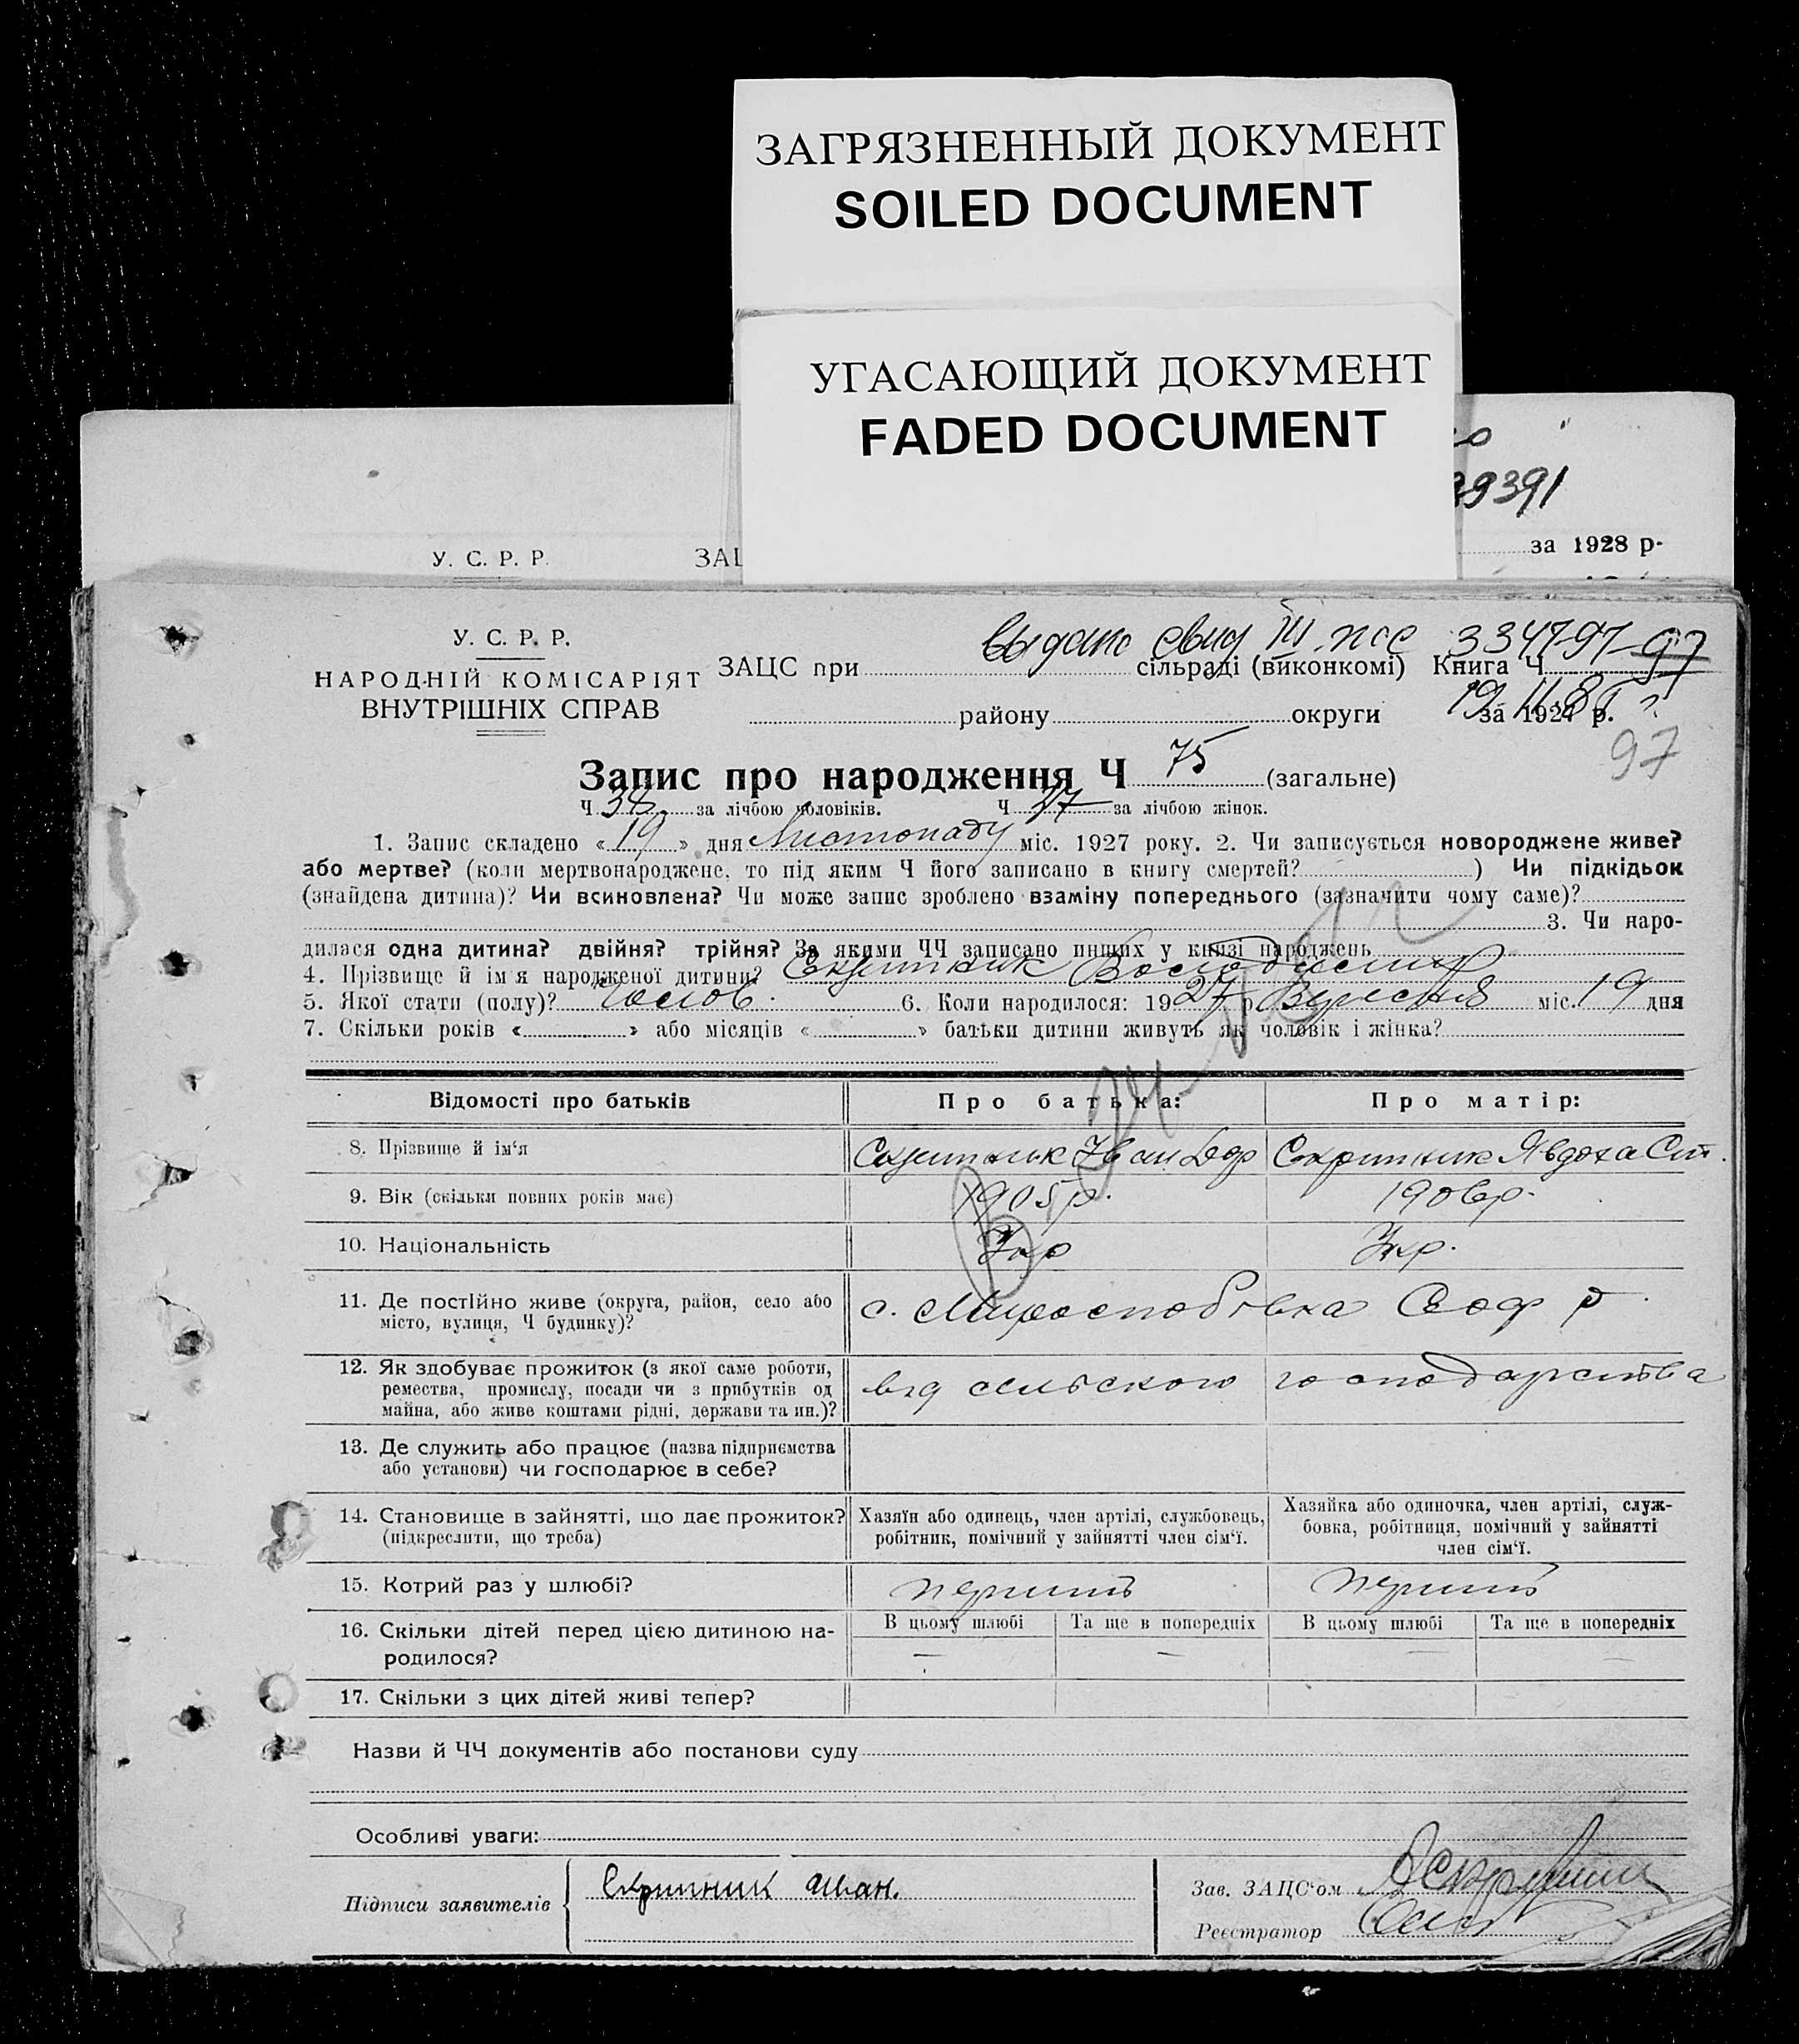 ЗАГРЯЗНЕННЫЙ ДОКУМЕНТ
SOILED DOCUMENT
УГАСАЮЩИЙ ДОКУМЕНТ
FADED DOCUMENT
39391
У. С. Р. Р. ЗАЦ за 1928 р.
У. С. Р. Р.
НАРОДНІЙ КОМІСАРІЯТ
ВНУТРІШНІХ СПРАВ
выдано свид III
ЗАЦС при сільраді (виконкомі) Книга Ч 97
району округи за 1927 р.
97
Запис про народження Ч 75 (загальне)
Ч 38 за лічбою чоловіків. Ч 27 за лічбою жінок.
1. Запис складено « 19 » дня Листопаду міс. 1927 року. 2. Чи записується новороджене живе?
або мертве? (коли мертвонароджене, то під яким Ч його записано в книгу смертей? ) Чи підкідьок
(знайдена дитина)? Чи всиновлена? Чи може запис зроблено взаміну попереднього (зазначити чому саме)?
3. Чи наро-
дилася одна дитина? двійня? трійня? За якими ЧЧ записано инших у книзі народжень
4. Прізвище й ім'я народженої дитини? Скрипник Володимир
5. Якої стати (полу)? чолов. 6. Коли народилося: 1927 р. Вересня міс. 19 дня
7. Скільки років « » або місяців « » батьки дитини живуть як чоловік і жінка?
Відомості про батьків Про батька: Про матір:
8. Прізвище й ім'я Скрипник Іван Скрипник Явдоха Ст.
9. Вік (скільки повних років має) 1905 р. 1906 р.
10. Національність Укр Укр.
11. Де постійно живе (округа, район, село або
місто, вулиця, Ч будинку)?
12. Як здобуває прожиток (з якої саме роботи,
ремества, промислу, посади чи з прибутків од
майна, або живе коштами рідні, держави та ин.)? від сільського господарства
13. Де служить або працює (назва підприємства
або установи) чи господарює в себе?
14. Становище в зайнятті, що дає прожиток?
(підкреслити, що треба)
Хазяїн або одинець, член артілі, службовець,
робітник, помічний у зайнятті член сім'ї.
Хазяйка або одиночка, член артілі, служ-
бовка, робітниця, помічний у зайнятті
член сім'ї.
15. Котрий раз у шлюбі? перший перший
16. Скільки дітей перед цією дитиною на-
родилося?
В цьому шлюбі Та ще в попередніх В цьому шлюбі Та ще в попередніх
— — — —
17. Скільки з цих дітей живі тепер?
Назви й ЧЧ документів або постанови суду
Особливі уваги:
Підписи заявителів Скрипник Иван.
Зав. ЗАЦС'ом
Реєстратор